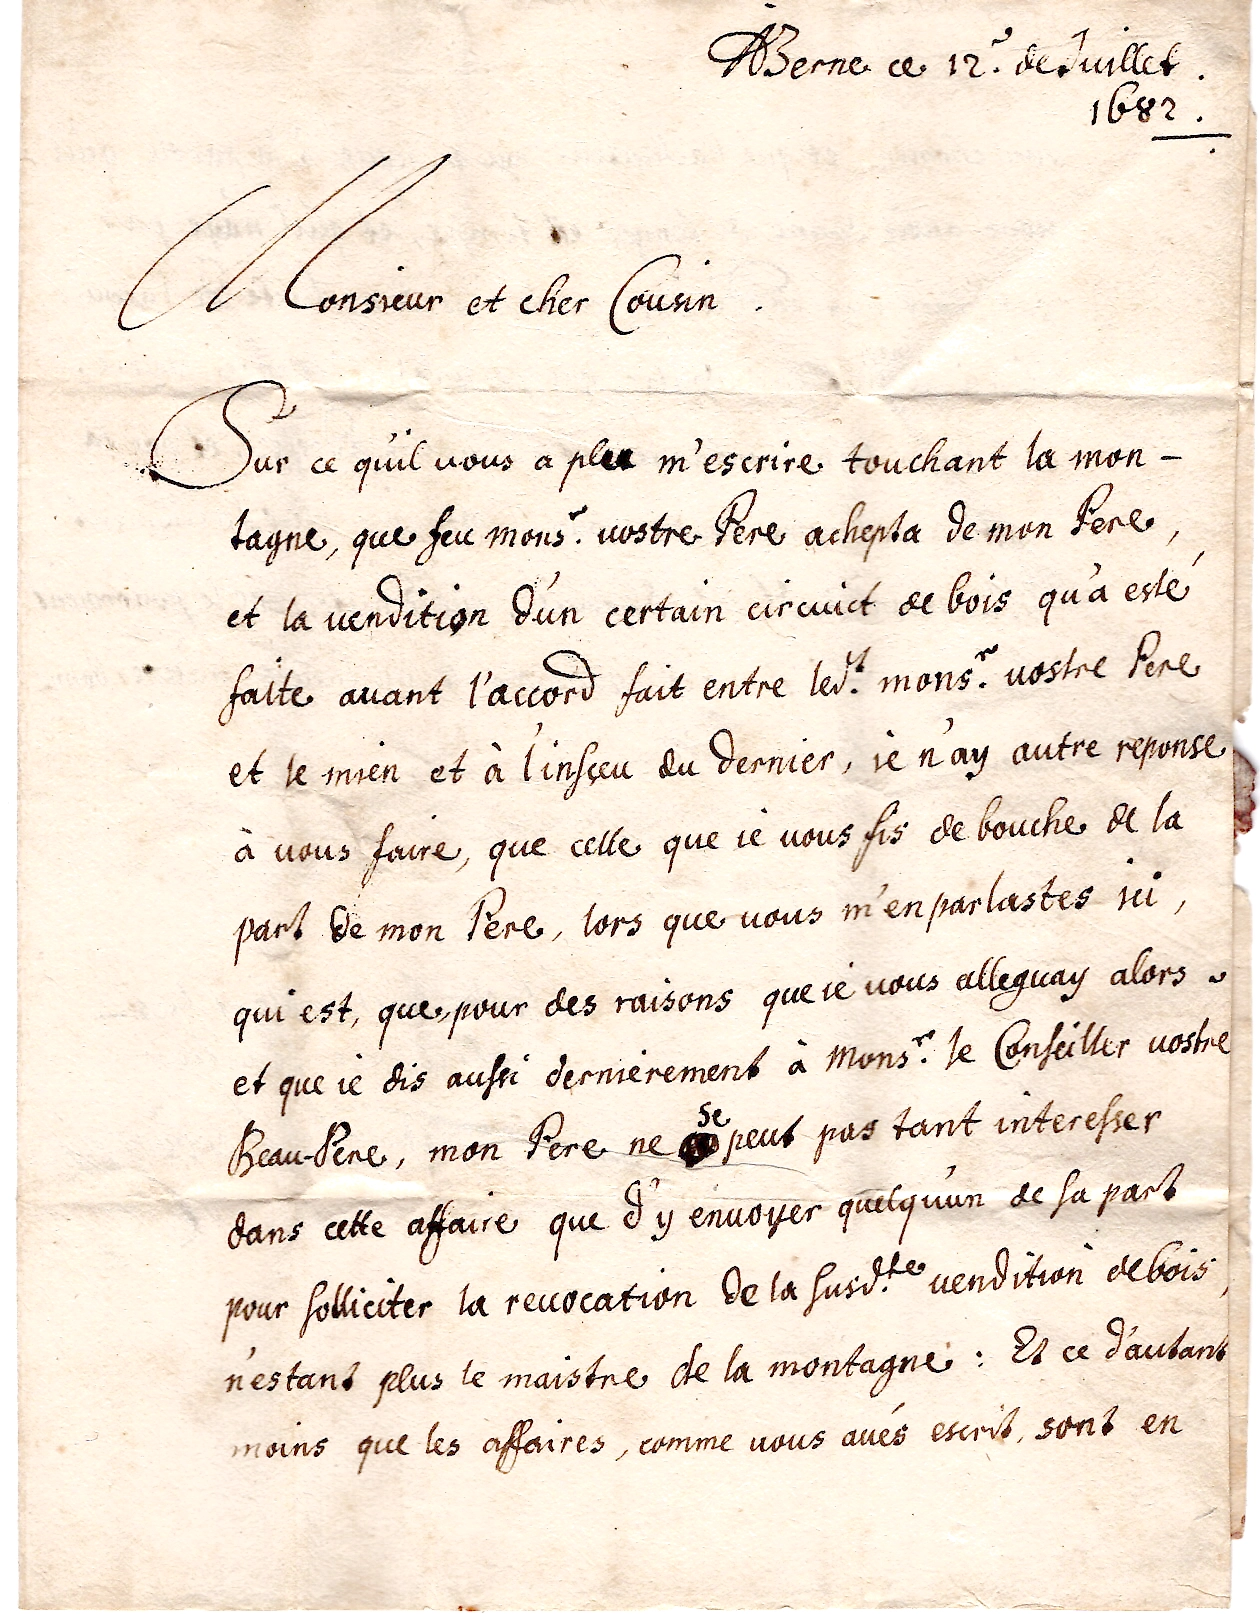 A Berne ce 12.e de Juillet.
1682.
Monsieur et cher Cousin.
Sur ce qu'il vous a pleu m'escrire touchant la mon-
tagne, que feu mons.r vostre Pere achepta de mon Pere,
et la vendition d'un certain circuict de bois qu'a esté
faite avant l'accord fait entre led.t mons.r vostre Pere
et le mien et à l'insçeu du dernier, ie n'ay autre reponse
à vous faire, que celle que ie vous fis de bouche de la
part de mon Pere, lors que vous m'en parlastes ici,
qui est, que, pour des raisons que ie vous alleguay alors
et que ie dis aussi dernierement à Mons.r le Conseiller vostre
Beau-Pere, mon Pere ne se peut pas tant interesser
dans cette affaire que d'y envoyer quelqu'un de sa part
pour solliciter la revocation de la susd.te vendition de bois,
n'estant plus le maistre de la montagne : Et ce d'autant
moins que les affaires, comme vous avés escrit, sont en